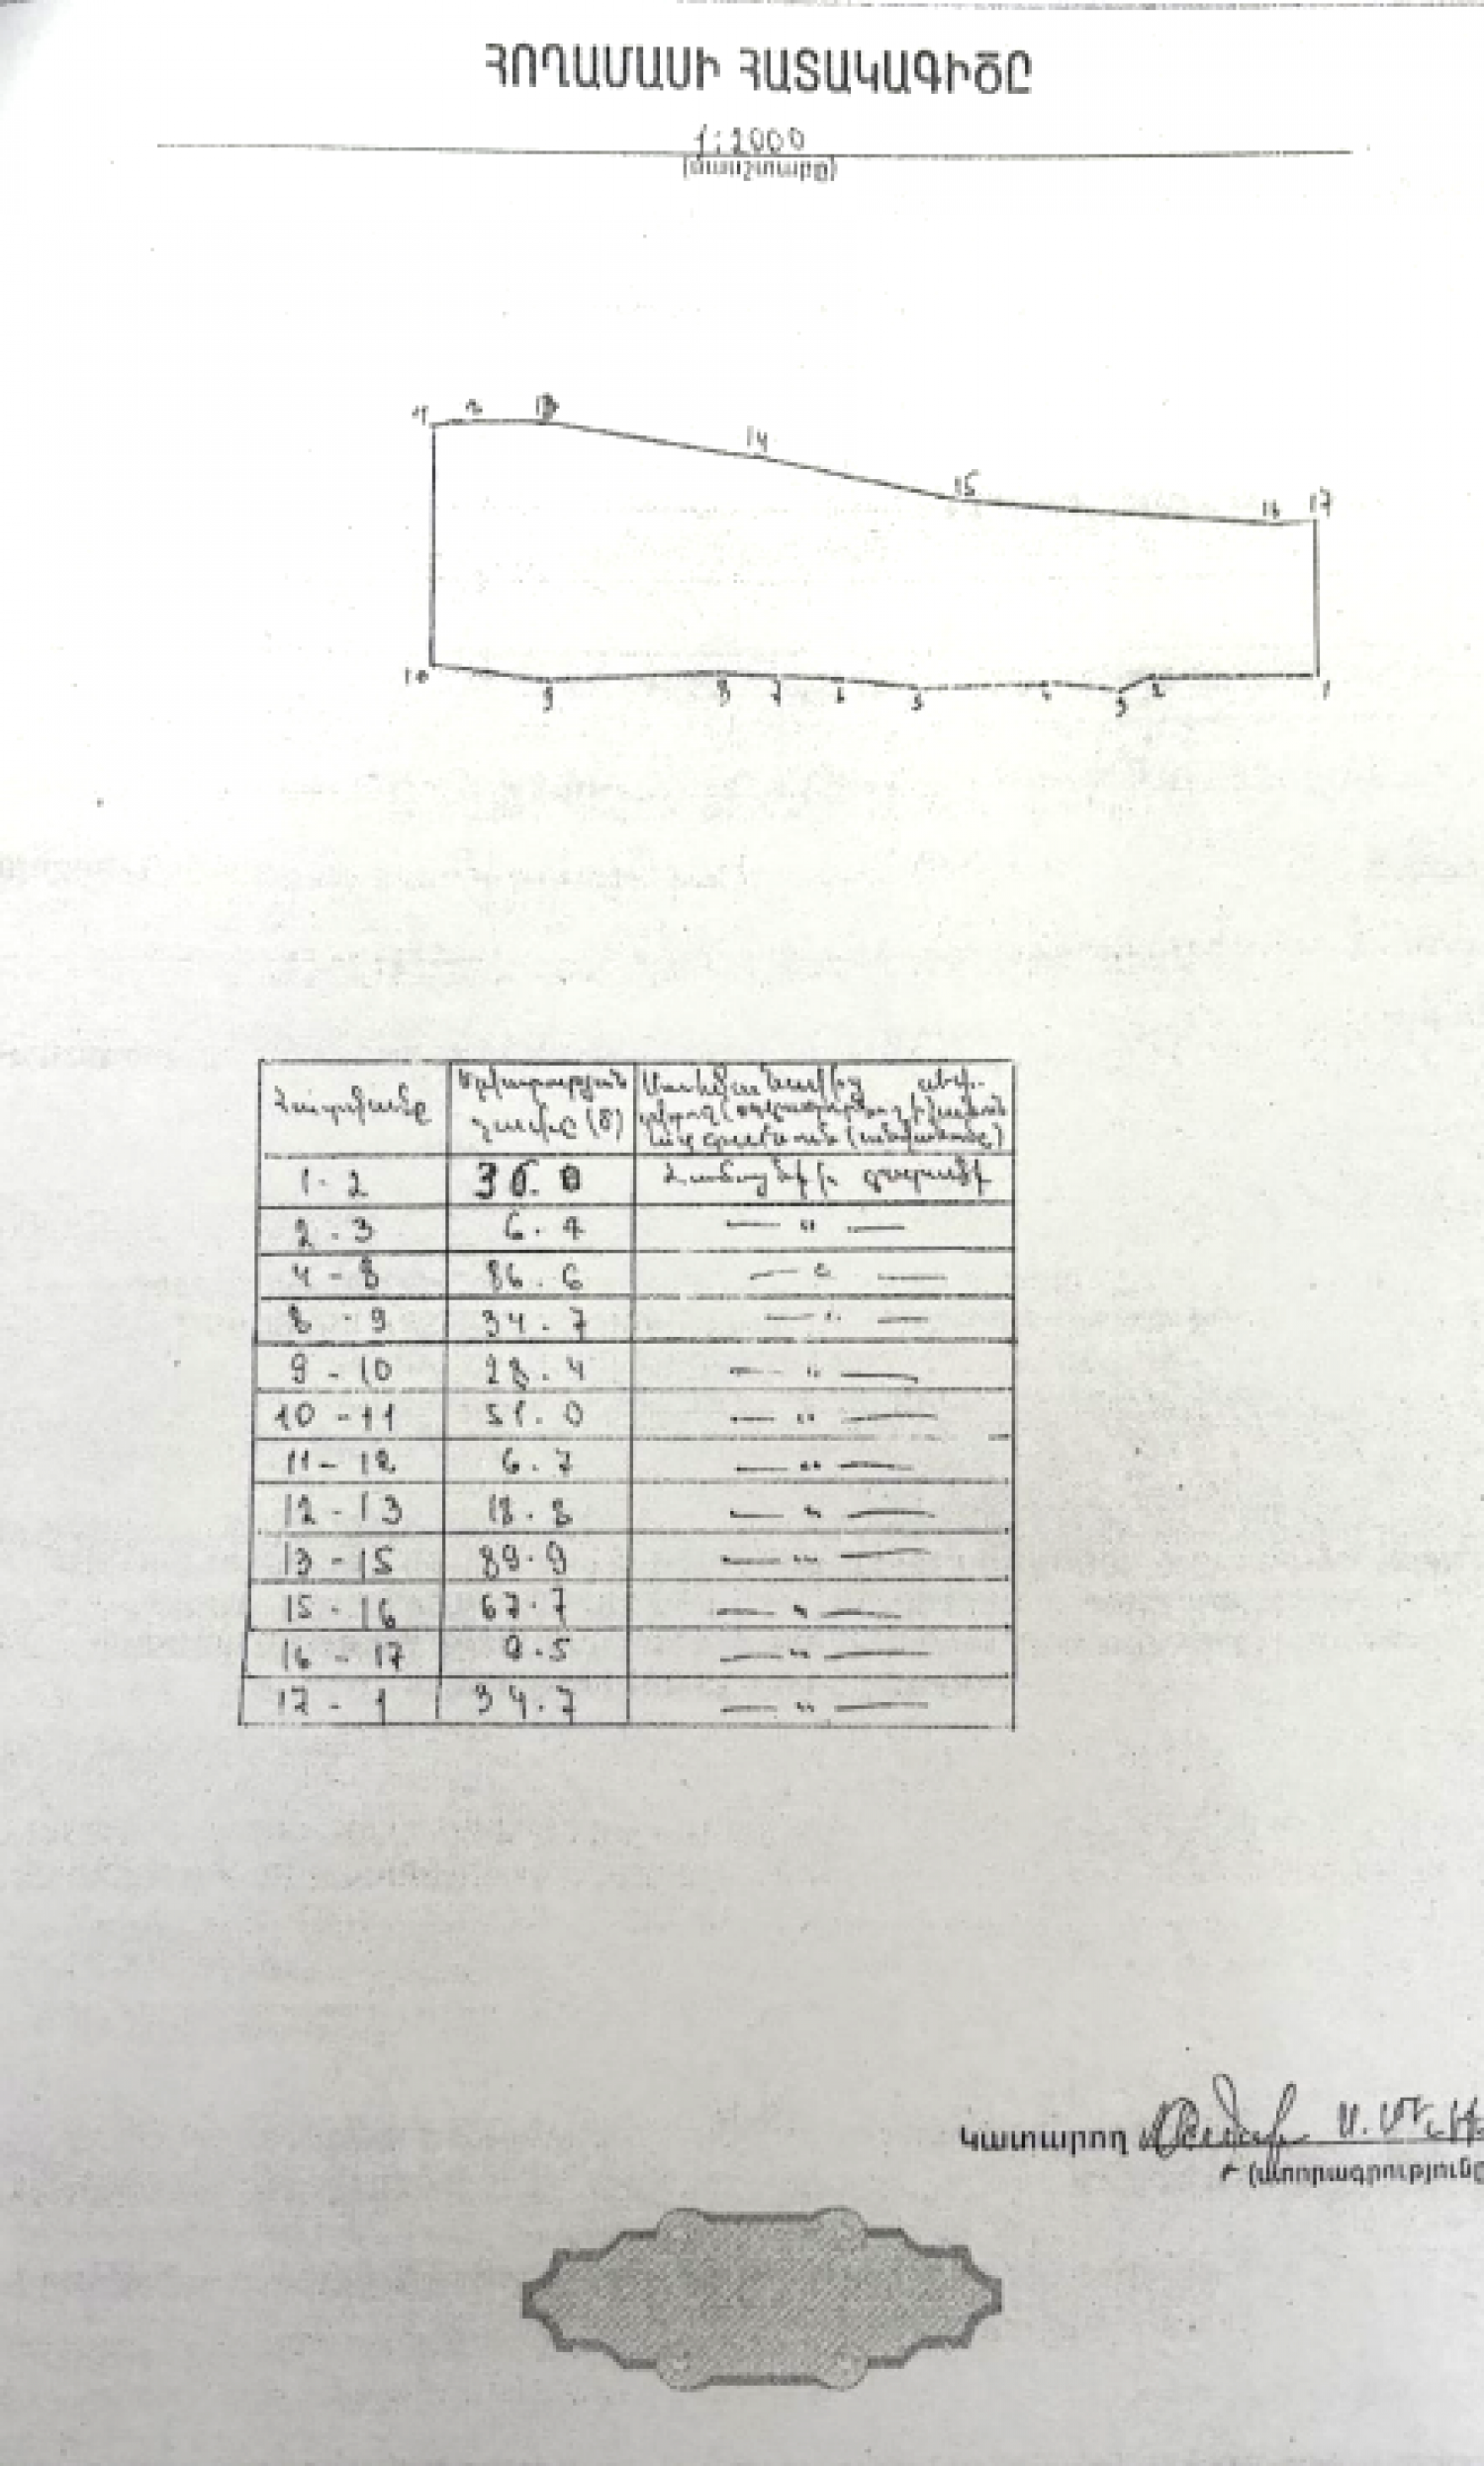 ՀՈՂԱՄԱՍԻ ՀԱՏԱԿԱԳԻԾԸ
1:2000
(մասշտաբը)
11 2 13
14
15
16 17
10
9 8 7 6 5 4 3 2 1
Հատվածը
Երկարության
չափը (մ)
1-2 36.0 Համայնքի
2-3 6.4 — " —
4-8 86.6 — " —
8-9 34.7 — " —
9-10 28.4 — " —
10-11 51.0 — " —
11-12 6.7 — " —
12-13 18.8 — " —
13-15 89.9 — " —
15-16 67.7 — " —
16-17 9.5 — " —
17-1 34.7 — " —
Կատարող
(ստորագրությունը